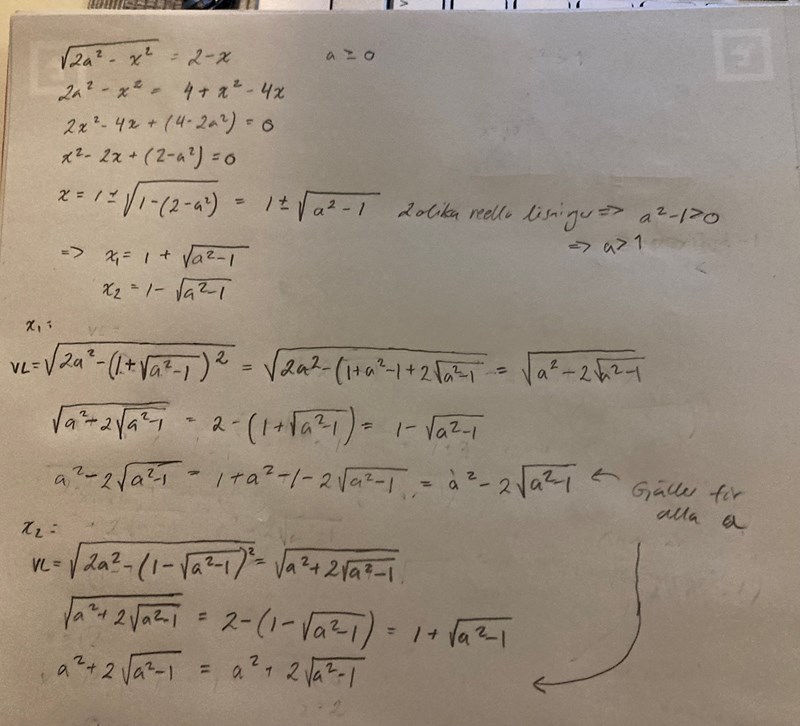 √(2a² - x²) = 2-x a ≥ 0
2a² - x² = 4 + x² - 4x
2x² - 4x + (4-2a²) = 0
x² - 2x + (2-a²) = 0
x = 1 ± √(1-(2-a²)) = 1 ± √(a²-1) 2 olika reella lösningar => a²-1>0
=> a>1
=> x₁ = 1 + √(a²-1)
x₂ = 1 - √(a²-1)
x₁:
VL = √(2a² - (1+√(a²-1))²) = √(2a² - (1+a²-1+2√(a²-1)) = √(a² - 2√(a²-1))
√(a²+2√(a²-1)) = 2-(1+√(a²-1)) = 1-√(a²-1)
a² - 2√(a²-1) = 1+a²-1-2√(a²-1) = a² - 2√(a²-1) ← Gäller för
alla a
x₂:
VL = √(2a² - (1-√(a²-1))²) = √(a²+2√(a²-1))
√(a²+2√(a²-1)) = 2-(1-√(a²-1)) = 1+√(a²-1)
a²+2√(a²-1) = a²+2√(a²-1)